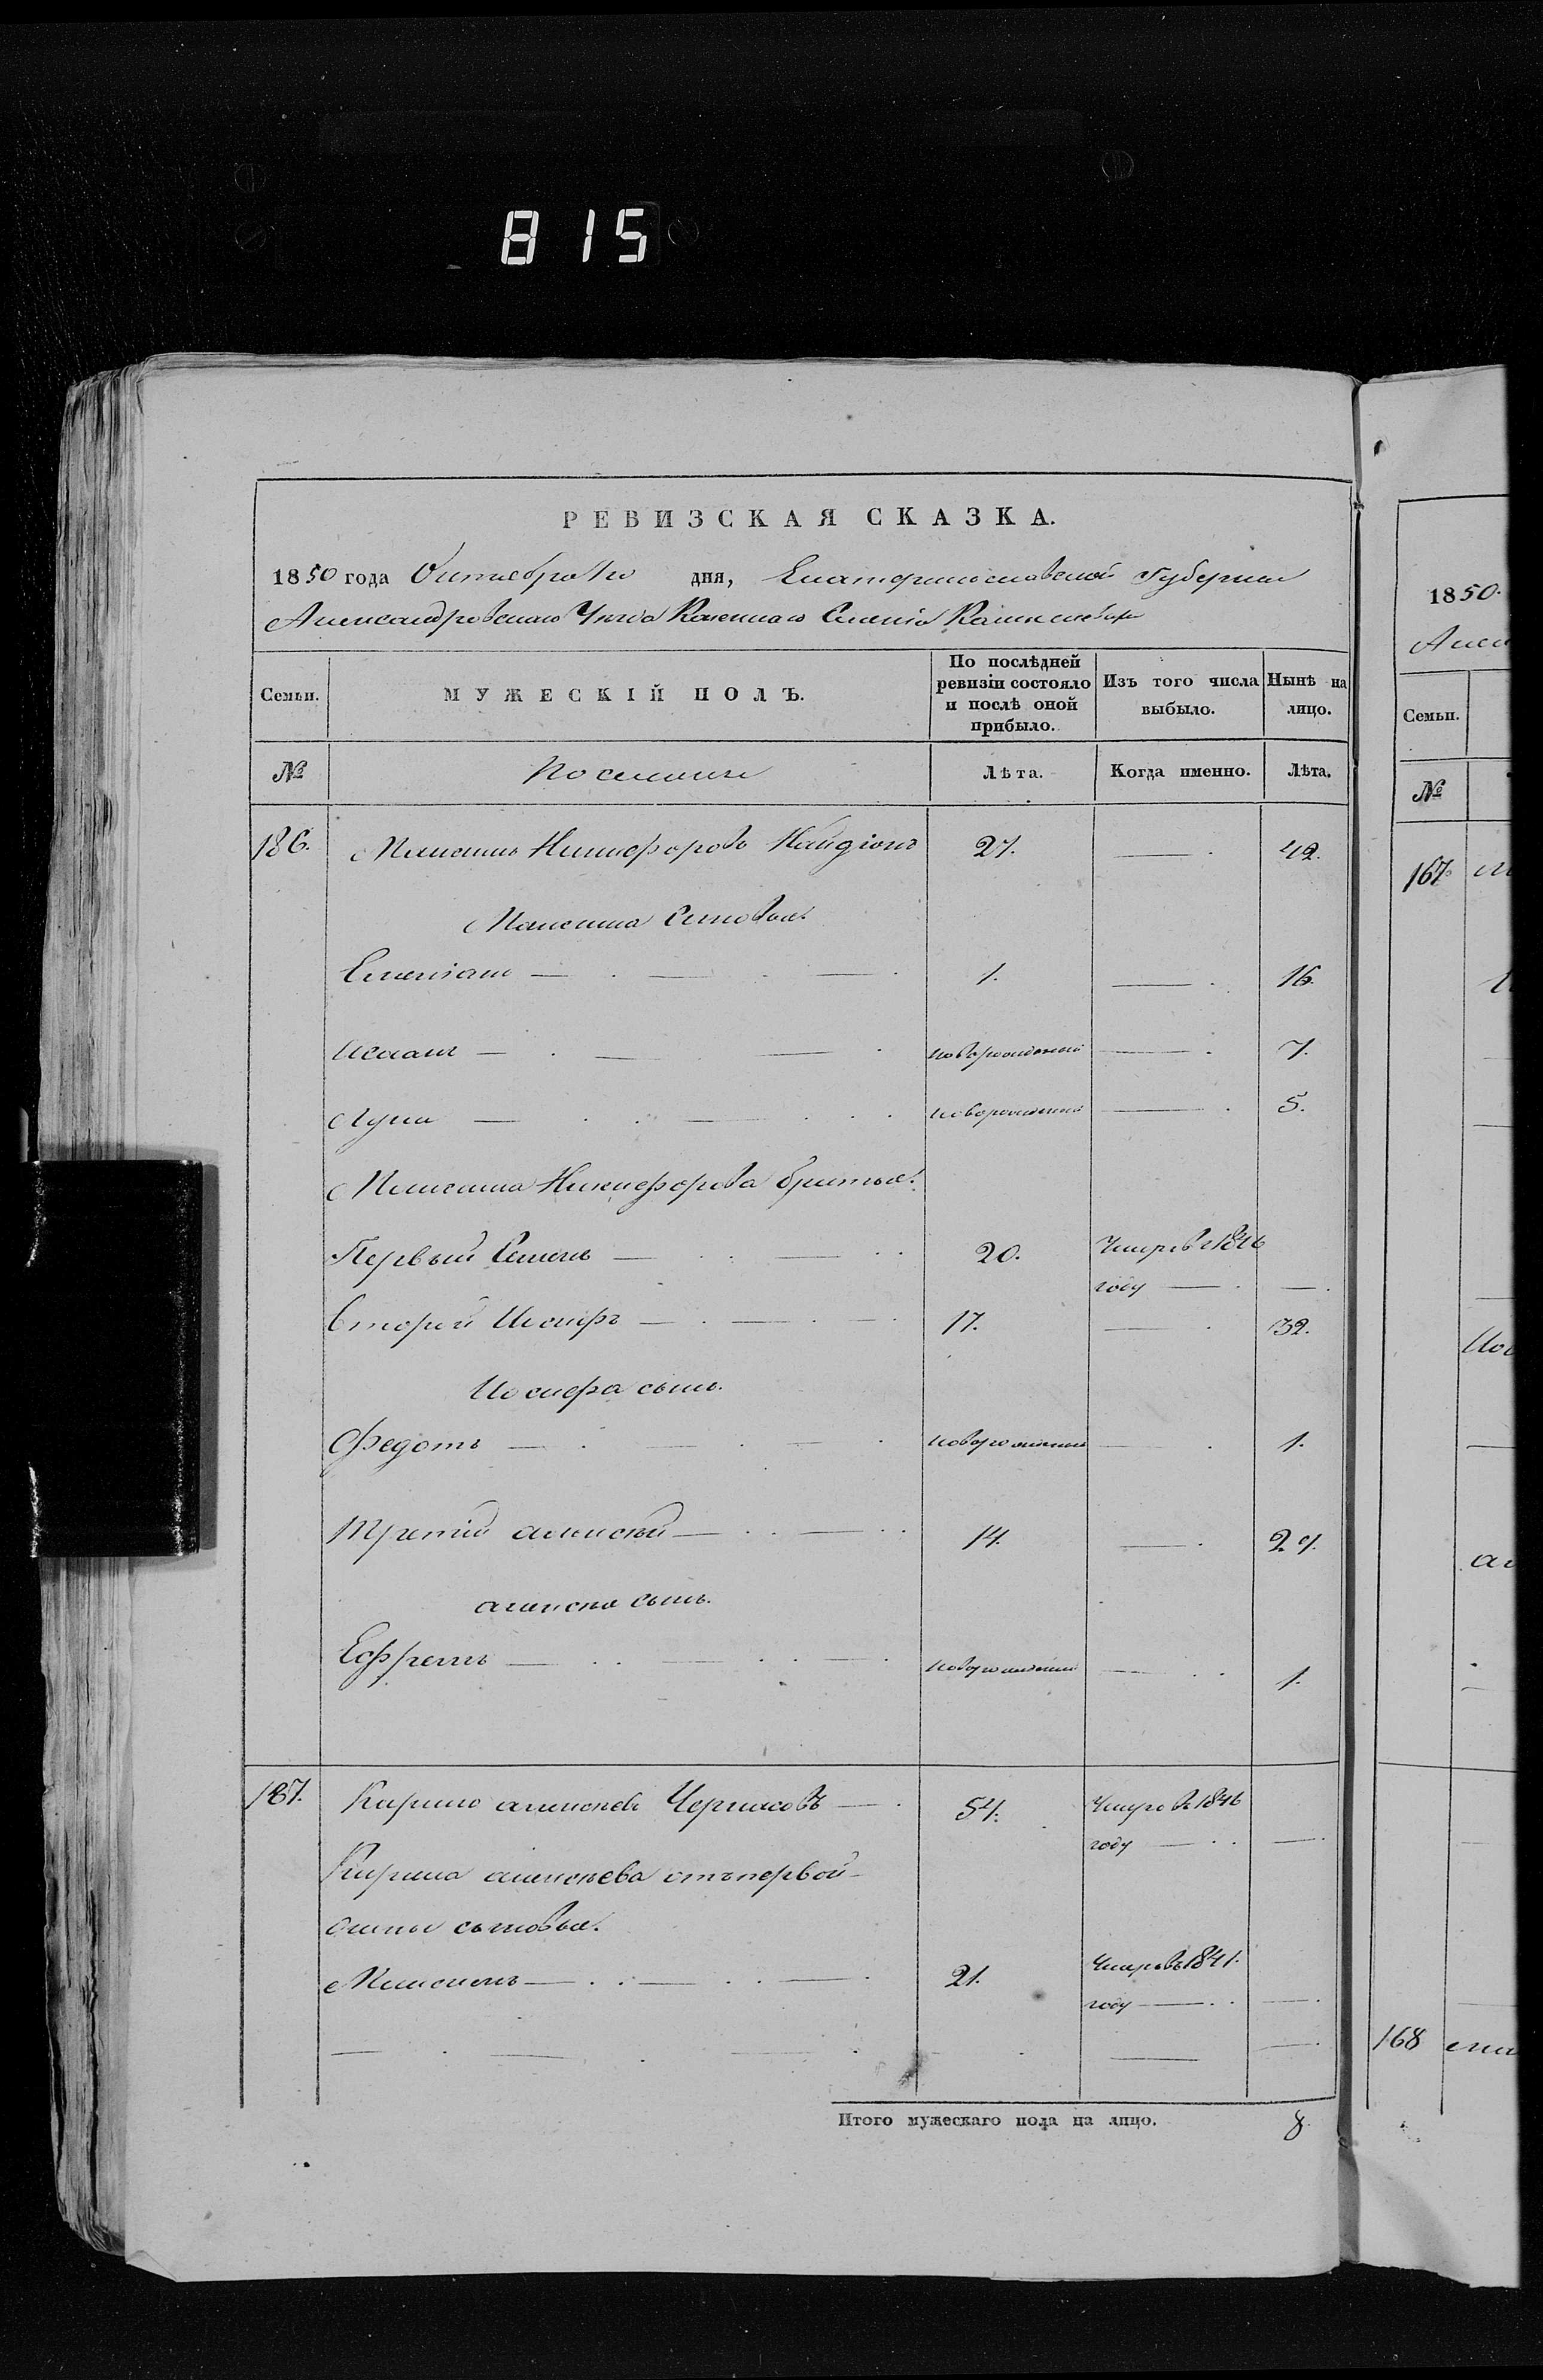 815
РЕВИЗСКАЯ СКАЗКА.
1850 года Октября 1го дня, Екатеринославской Губернии
Александровскаго Уезда Казеннаго Селенія
Семьи. МУЖЕСКІЙ ПОЛЪ. По послѣдней ревизіи состояло и послѣ оной прибыло. Изъ того числа выбыло. Нынѣ на лицо.
№ Поселяне Лѣта. Когда именно. Лѣта.
186. Максимъ Никифоровъ Найдіонъ 27. — 42.
Максима Сыновья.
Емеліанъ — 1. — 16.
Иоаанъ — новорожденный — 7.
Лука — новорожденный — 5.
Максима Никифорова братья.
Первый Семенъ — 20. Умеръ в 1846
году — —
Вторый Иосифъ — 17. — 32.
Иосифа сынъ.
Федотъ — новорожденный — 1.
Третій алексѣй — 14. — 29.
алексѣя сынъ.
Ефремъ — новорожденный — 1.
187. Кирило алексѣевъ Черкасовъ — 54. Умеръ въ 1846
году — —
Кирила алексѣева отъ первой
жены сыновья.
Максимъ — 21. Умеръ въ 1841.
году — —
Итого мужескаго пола на лицо. 8.
1850.
Алек
Семьи.
№
167.
168